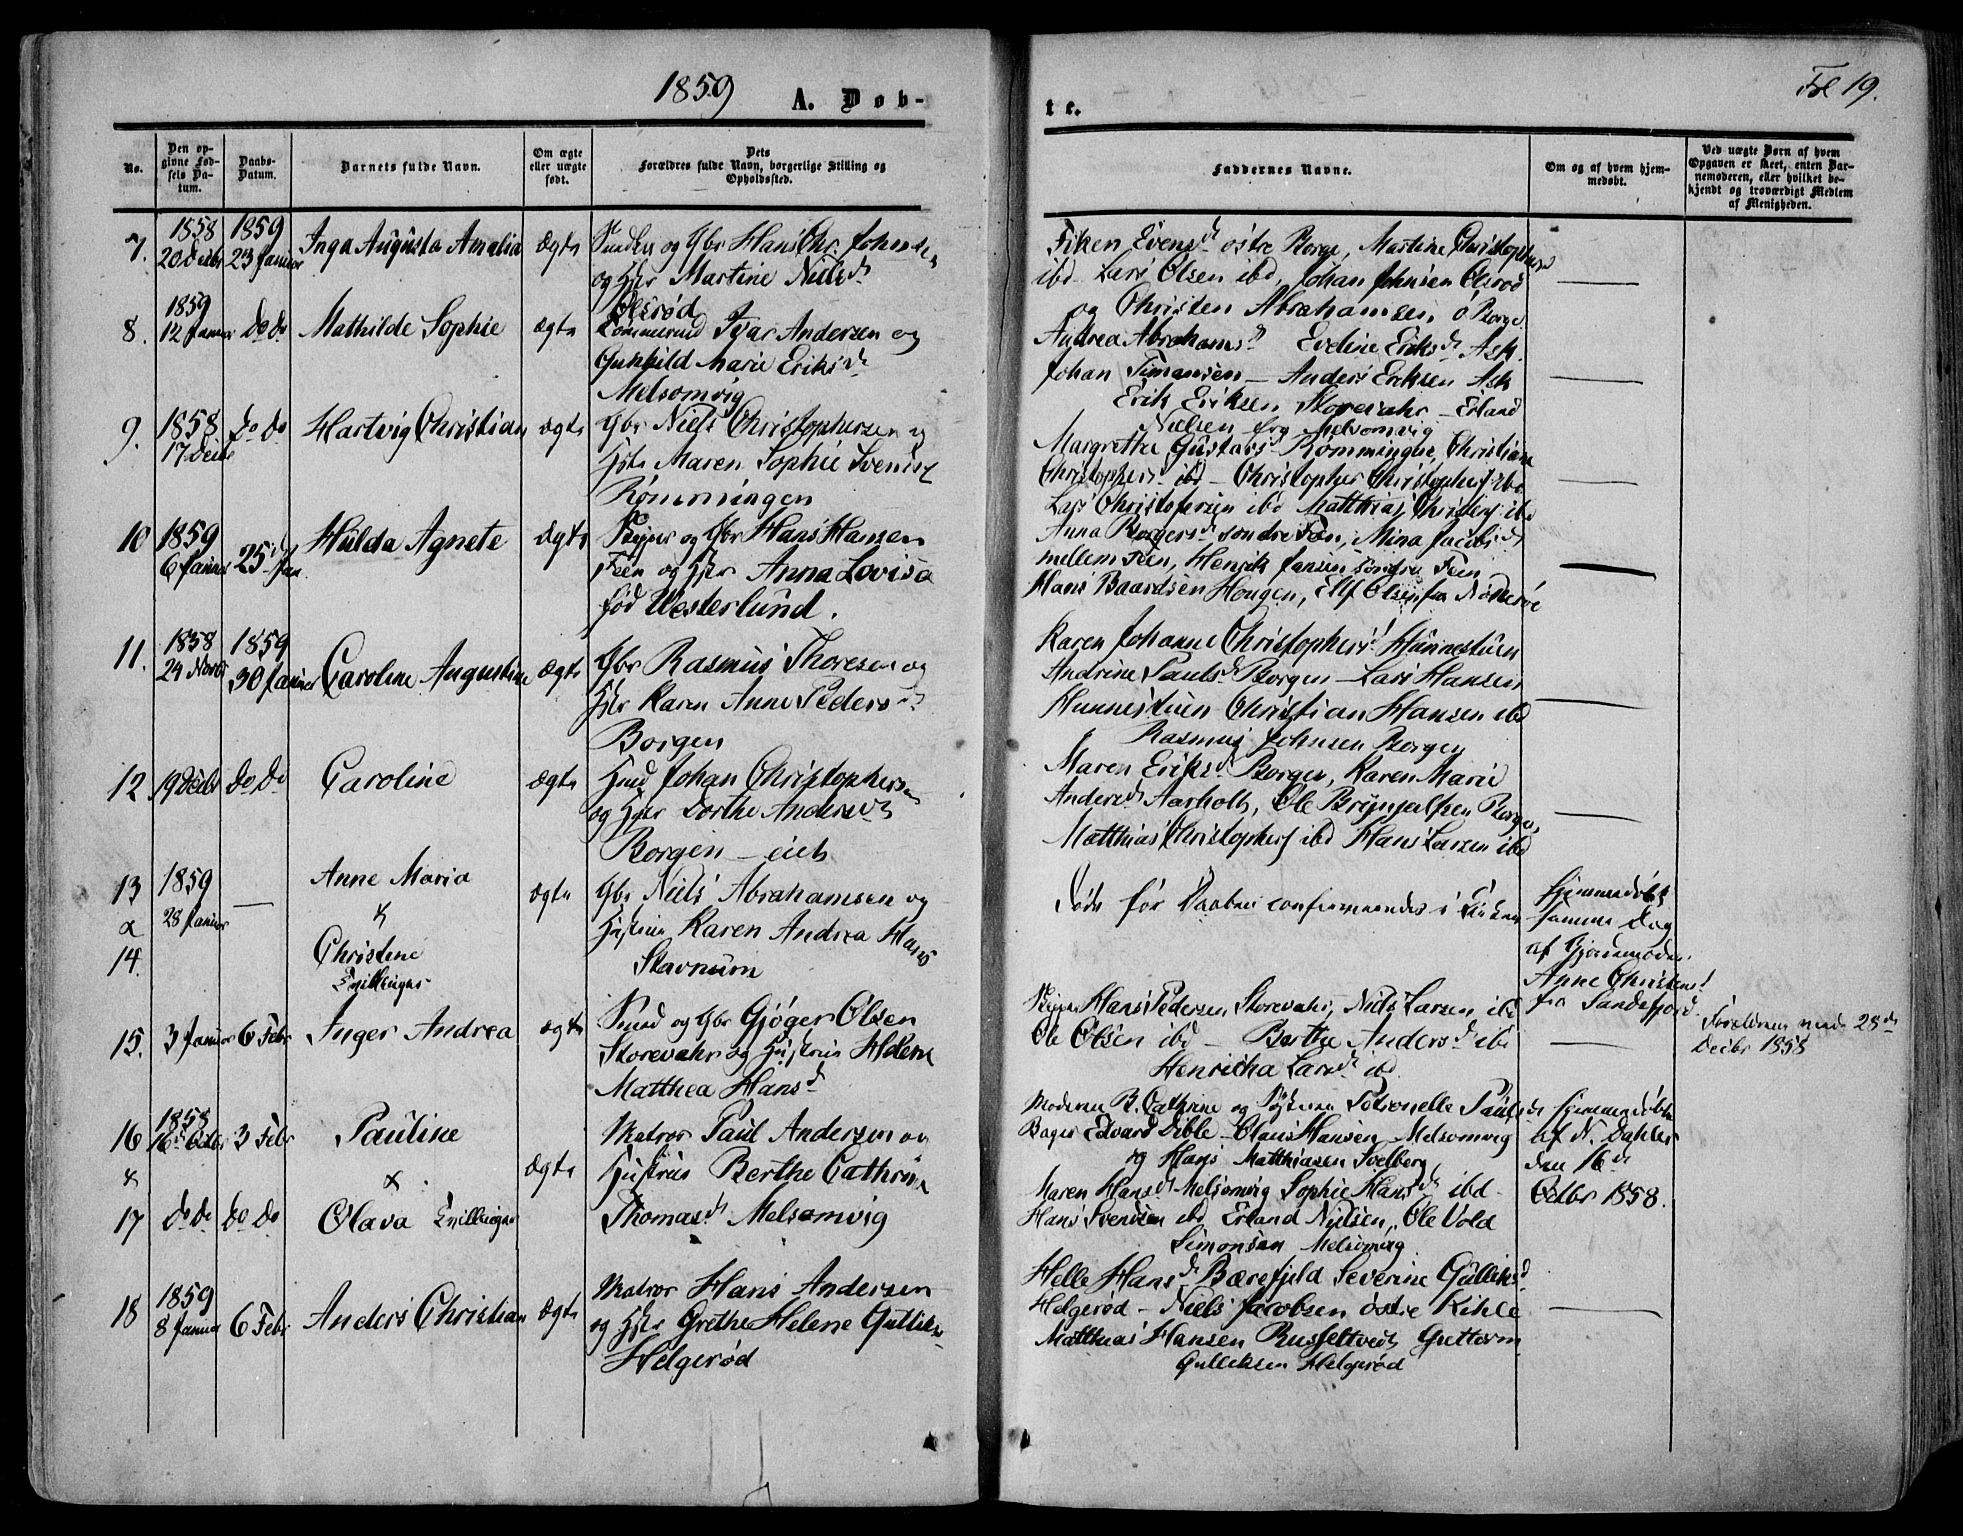 1859 A. Døb-
te.
Fol 19.
No.
Den op-
givne Fød-
sels Da-
tum.
Daabs-
Datum.
Barnets fulde Navn.
Om ægte
eller uægte
født.
Dets
Forældres fulde Navn, borgerlige Stilling og
Opholdssted.
Faddernes Navne.
Om og af hvem hjem-
medøbt.
Ved uægte Børn af hvem
Opgaven er skeet, enten Bar-
nemoderen, eller hvilket be-
kjendt og troværdigt Medlem
af Menigheden.
7. 1858 20 Decbr 1859 23 Januar Inga Augusta Amalia Ægte
og Gbr Hans Chr. Johnsen
og Hstr Martine Niels d
Olsrød
Fiken Evens d østre Borge, Martine Christophers
ibd Lars Olsen ibd, Johan Johnsen Olsrød
og Christen Abrahamsen ø Borge
8. 1859 12 Januar do do Mathilde Sophie ægte
Tømmermd Ivar Andersen og
Gunhild Marie Eriks d
Melsomvig
Andrea Abrahams d Eveline Eriks d Ask
Johan Timansen – Anders Eriksen Ask
Erik Eriksen Storevahr – Erland
Nielsen Melsomvig
9. 1858 17 Decbr do do Hartvig Christian ægte
Gbr Niels Christophersen og
Hstr Maren Sophie Svends d
Rømmingen
Margrethe Gustavs Rømmingen, Christiane
Christophers d ibd – Christopher Christophers ibd
Lars Christofersen ibd Matthias Christophers ibd
10 1859 6 Januar 25 d Jan Hulda Agnete Ægte
og Gbr Hans Hansen
Feen og Hstr Anna Lovisa
fød Westerlund.
Anna Borgers d søndre Feen, Mina Jacobs d
mellem Feen, Henrik Jansen søndre Feen
Hans Baardsen Hougen, Ellef Olsen fra Nøtterøe
11. 1858 24 Novbr 1859 30 Januar Caroline Augustine ægte
Gbr Rasmus Thoresen og
Hstr Karen Anne Peders d
Borgen
Karen Johanne Christophers d Hunnestuen
Andrine Pauls d Borgen – Lars Hansen
Hunnestuen Christian Hansen ibd
Rasmus Johnsen Borgen
12 19 Decbr do do Caroline ægte
Johan Christophersen
og Hstr Dorthe Anders d
Borgen – eiet
Maren Eriks d Borgen, Karen Marie
Anders d Aarholt, Ole Brynjulfsen Borgen,
Matthias Christophers ibd Hans Larsen ibd
13 1859 28 Januar — Anne Maria
&
14. Christine
Tvillinger
ægte
Gbr Niels Abrahamsen og
Hustru Karen Andrea Hans d
Stavnum
Døde før Daaben confirmeredes i Kirken
hjemmedøbt
samme Dag
af Gjordemoder
Anne Christens d
fra Sandefjord.
15. 3 Januar 6 Febr Inger Andrea ægte
Smed og Gbr Gjøger Olsen
Storevahr og Hustru Helene
Matthea Hans d
Hans Pedersen Storevahr, Niels Larsen ibd
Ole Olsen ibd – Berthe Anders d ibd
Henricha Lars d ibd
Forældrene viede 28 de
Decbr 1858
16 1858 16 de Octbr 3 Febr Pauline
&
17 do do do do Olava Tvillinger
ægte
Matros Paul Andersen og
Hustru Berthe Cathrine
Thomas d Melsomvig
Moderen B. Cathrine og Søsteren Petronelle Pauls d
Bager Edvard Dible – Olaus Hansen Melsomvig
og Hans Matthiasen Svelberg.
Maren Hans d Melsomvig Sophie Hans d ibd
Hans Svendsen ibd Erland Nielsen, Ole Vold
Simonsen Melsomvig
hjemmedøbte
af N. Dahler
den 16 de
Octbr 1858.
18 1859 8 Januar 6 Febr Anders Christian ægte
Matros Hans Andersen
og Hstr Grethe Helene Gulliks d
Helgerød
Helle Hans d Bærefjeld Severine Gulliks d
Helgerød – Niels Jacobsen østre Kihle
Matthias Hansen Russeltvedt Guttorm
Gulliksen Helgerød